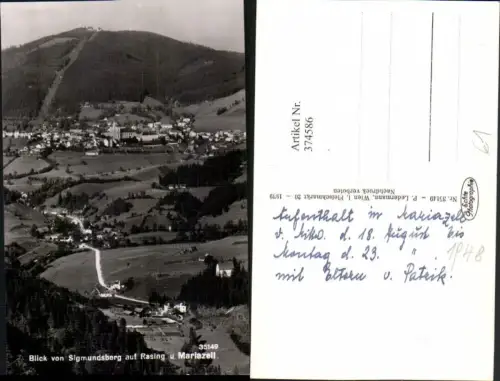 35149
Blick von Sigmundsberg auf Rasing u. Mariazell
Artikel Nr.
374586
Nr. 35149 – P. Ledermann, Wien I, Fleischmarkt 20 – 1879
Nachdruck verboten
Echte Photographie
Aufenthalt in Mariazell
v. Niko. d. 18. August bis
Montag d. 23. " . 1948
mit Eltern u. Patrik.